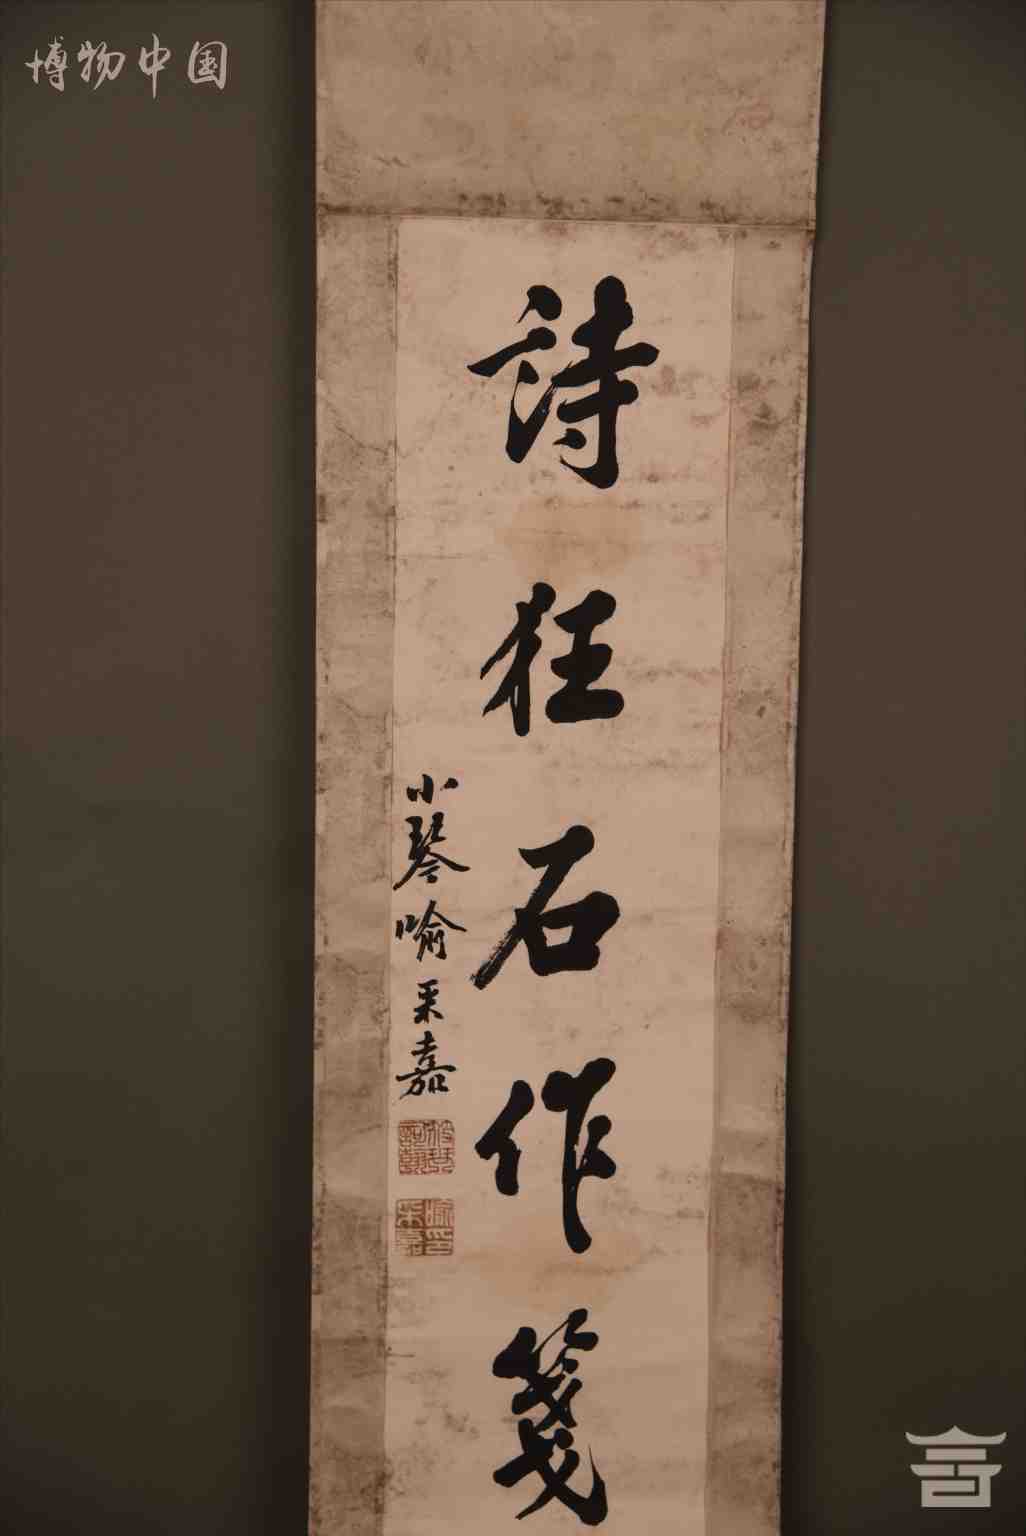 博物中国
詩狂石作箋
小琴喻采嘉